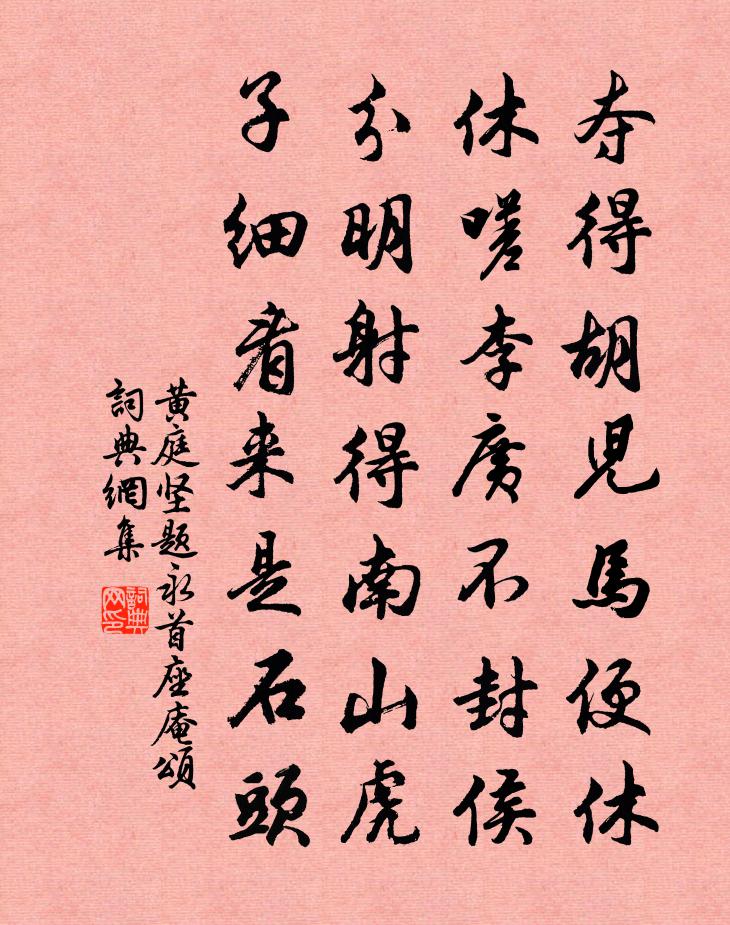 夺得胡児馬便休
休嗟李廣不封侯
分明射得南山虎
子细看来是石頭
黄庭坚题永首座庵頌
詞典網集
詞典
网印